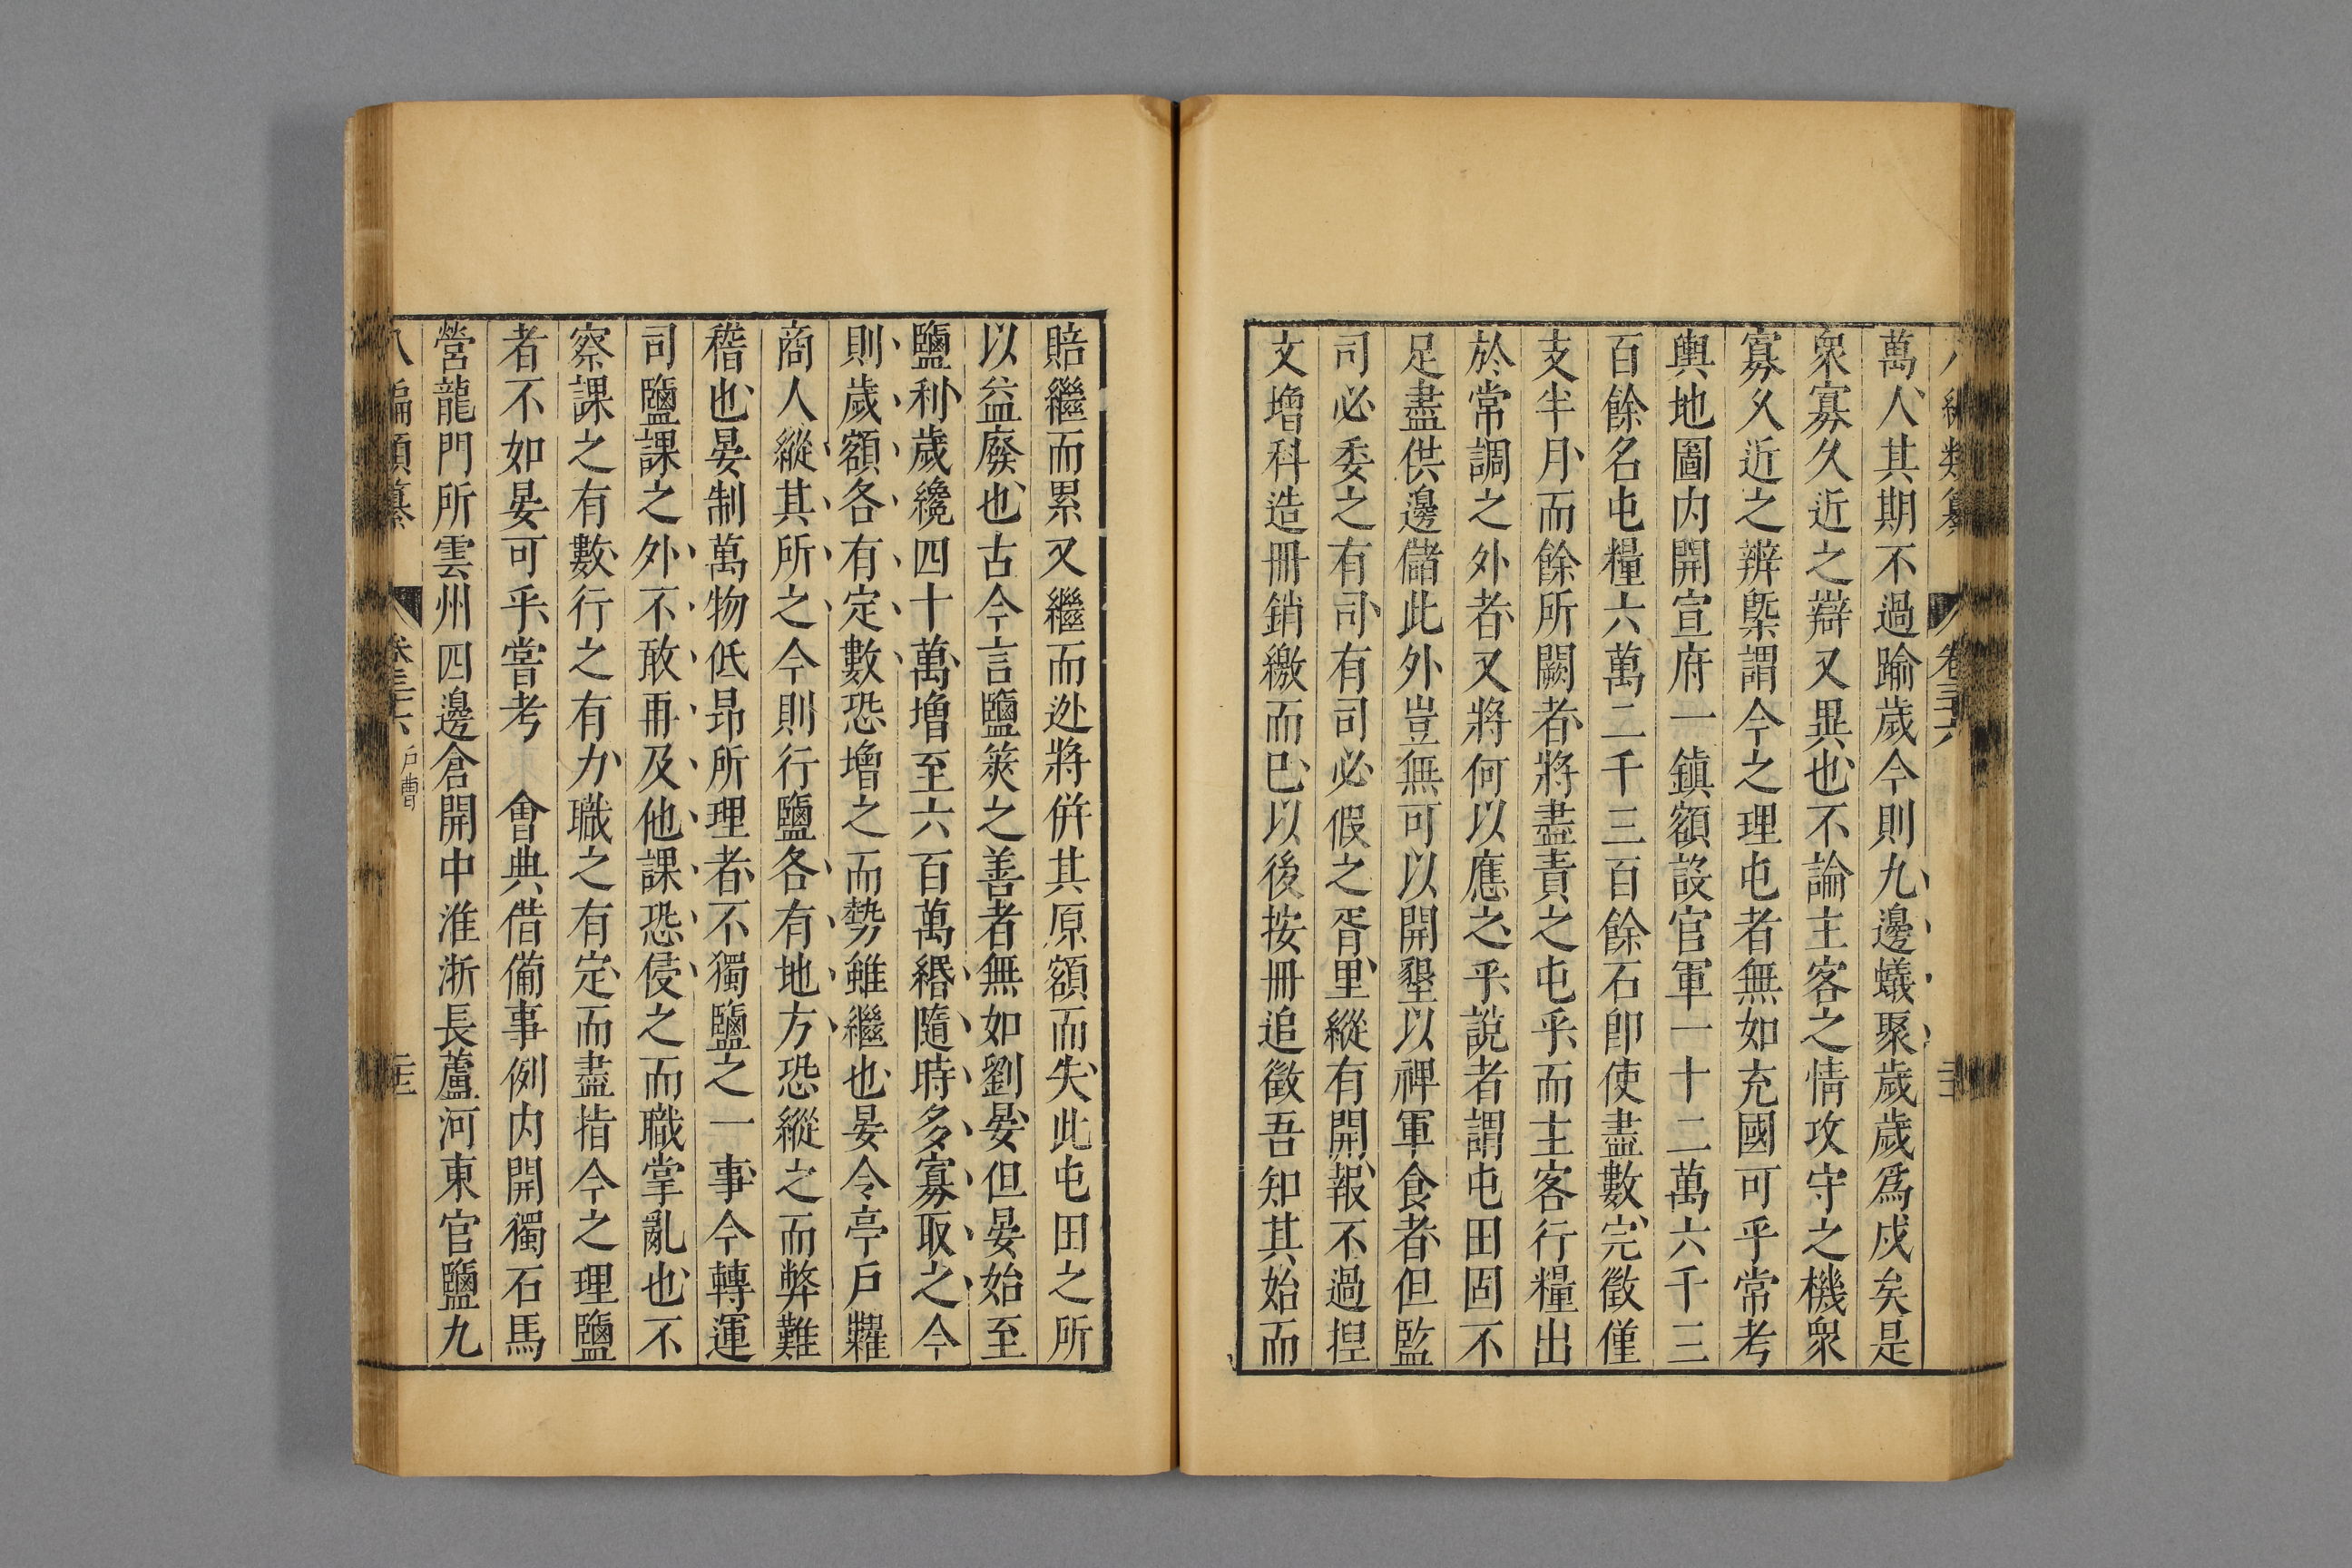 萬人其期不過踰歲今則九邊蟻聚歲歲爲戍矣是
衆寡久近之辯又異也不論主客之情攻守之機衆
寡久近之辨槩謂今之理屯者無如充國可乎常考
輿地圖内開宣府一鎮額設官軍一十二萬六千三
百餘名屯糧六萬二千三百餘石卽使盡數完徵僅
支半月而餘所闕者將盡責之屯乎而主客行糧出
於常調之外者又將何以應之乎說者謂屯田固不
足盡供邊儲此外豈無可以開墾以裨軍食者但監
司必委之有司有司必假之胥里縱有開報不過捏
文增科造冊銷繳而巳以後按冊追徵吾知其始而
賠繼而累又繼而迯將併其原額而失此屯田之所
以益廢也古今言鹽筴之善者無如劉晏但晏始至
鹽利歲纔四十萬增至六百萬緡隨時多寡取之今
則歲額各有定數恐增之而勢難繼也晏令亭戶糶
商人縱其所之今則行鹽各有地方恐縱之而弊難
稽也晏制萬物低昻所理者不獨鹽之一事今轉運
司鹽課之外不敢再及他課恐侵之而職掌亂也不
察課之有數行之有力職之有定而盡指今之理鹽
者不如晏可乎嘗考　會典借備事例内開獨石馬
營龍門所雲州四邊倉開中淮浙長蘆河東官鹽九
八編類纂　卷三十六 戶曹